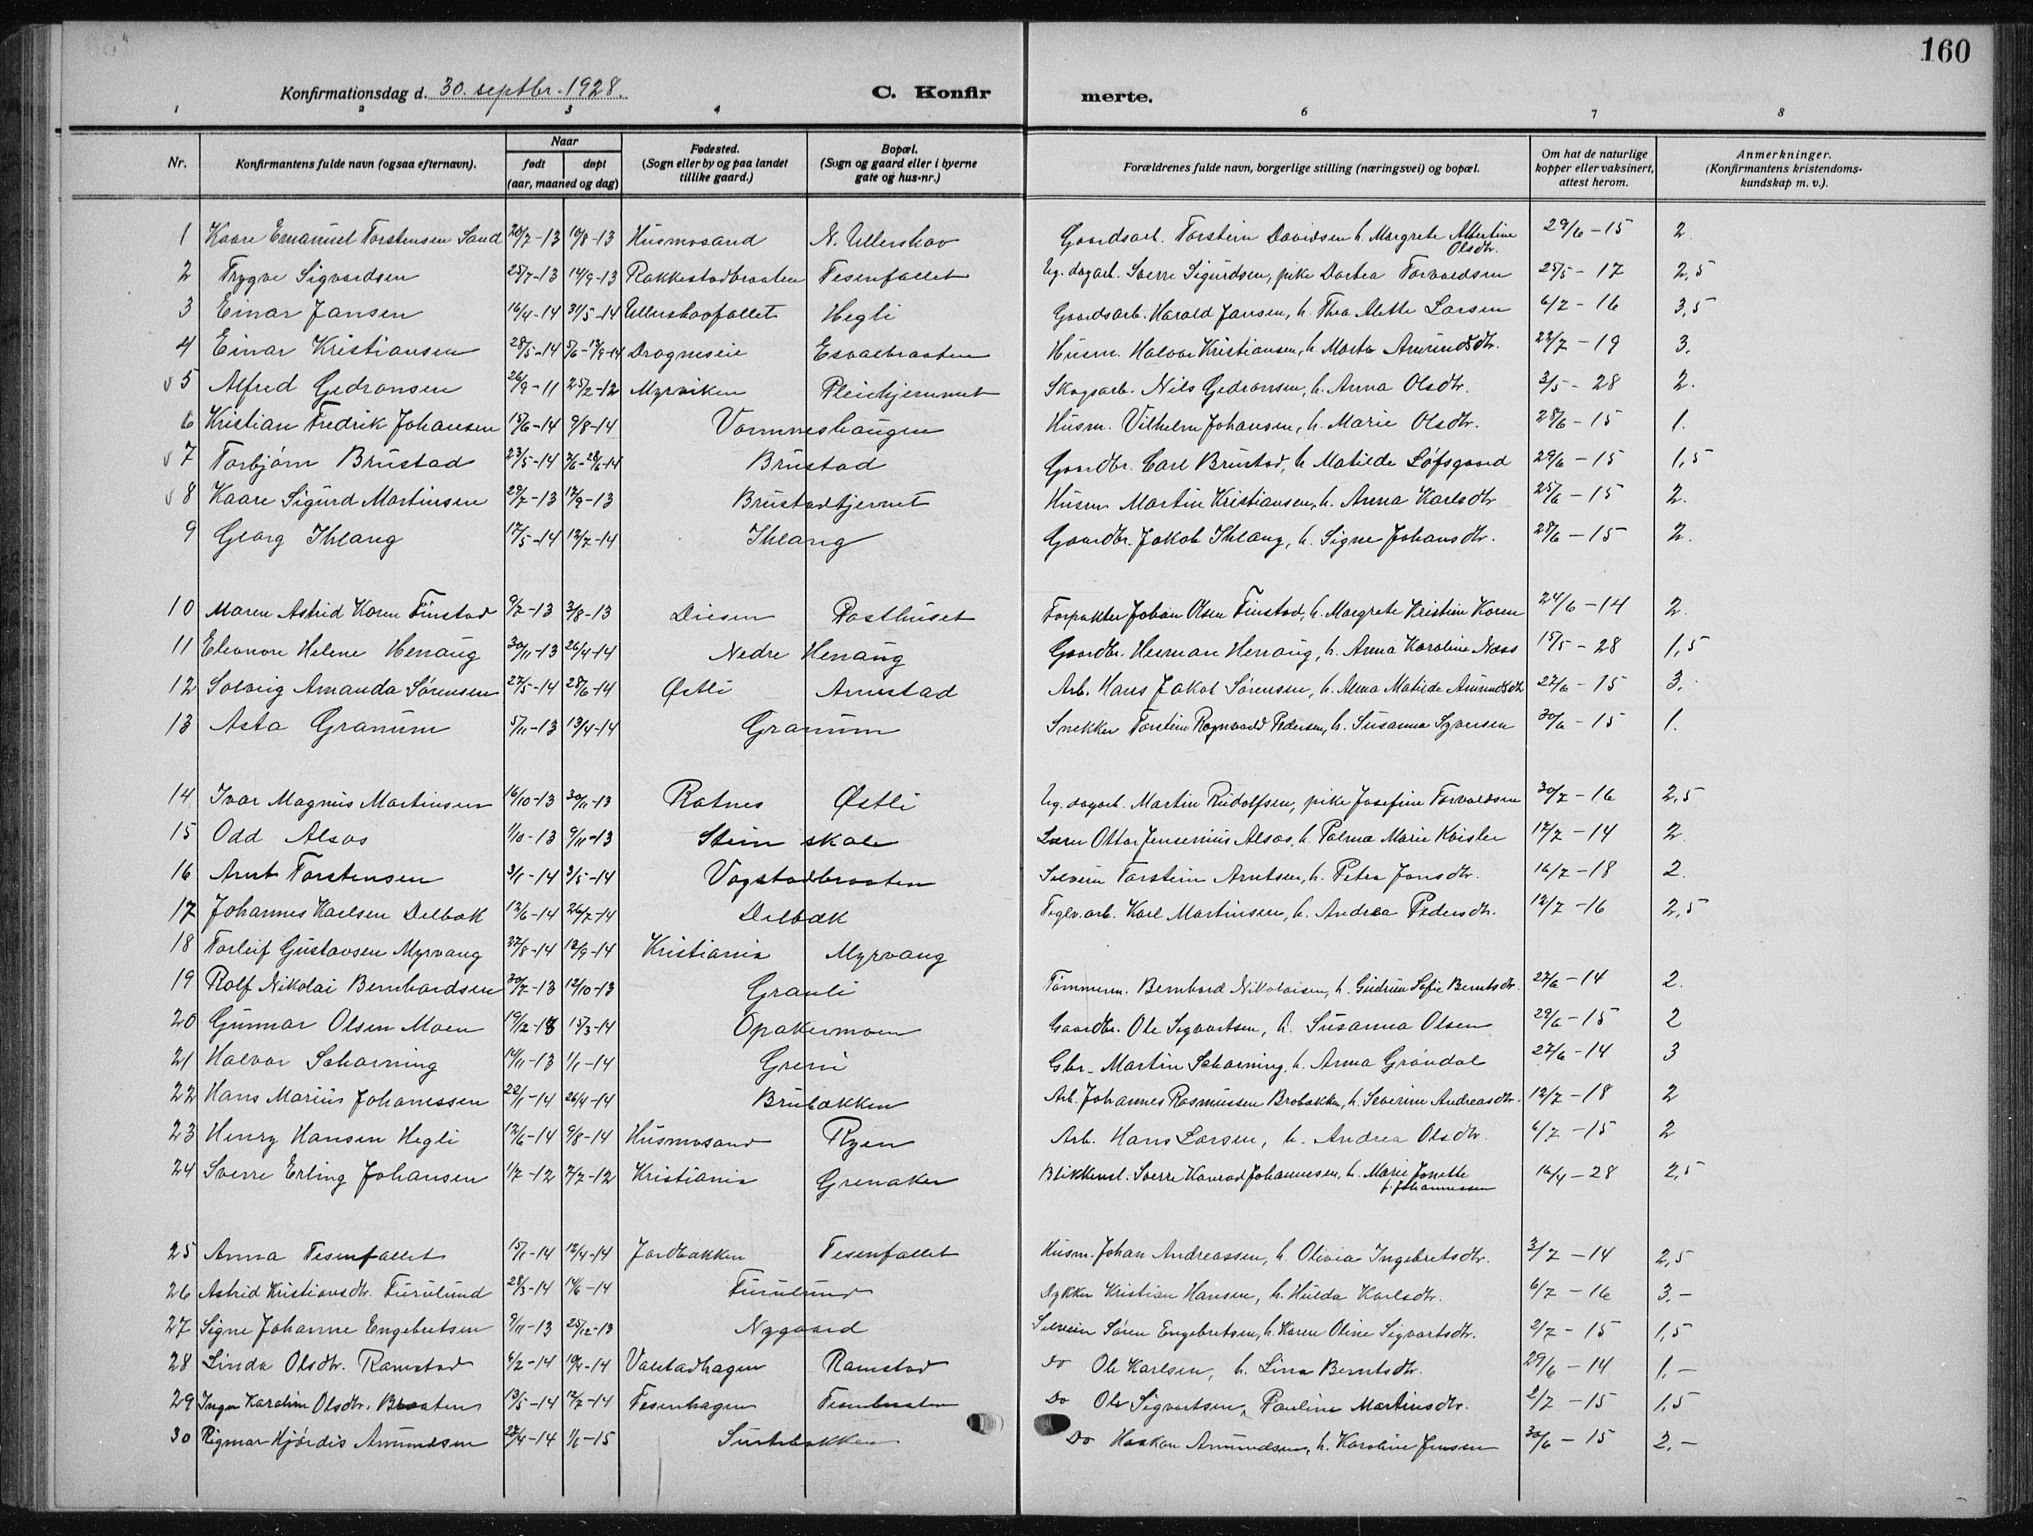 160
Konfirmationsdag d. 30. septbr. 1928. C. Konfir merte.
1 2 3 4 6 7 8
Nr. Konfirmantens fulde navn (ogsaa efternavn). Naar født døpt (aar, maaned og dag) Fødested. (Sogn eller by og paa landet tillike gaard.) Bopæl. (Sogn og gaard eller i byerne gate og hus-nr.) Forældrenes fulde navn, borgerlige stilling (næringsvei) og bopæl. Om hat de naturlige kopper eller vaksinert, attest herom. Anmerkninger. (Konfirmantens kristendomskundskap m. v.).
1 Kaare Emanuel Torstensen Sand 20/7-13 10/8-13 Husmosand N. Ullershov Gaardsarb. Torstein Davidsen h. Margrete Albertine Olsdtr. 29/6-15 2.
2 Trygve Sigvardsen 25/7-13 14/9-13 Rakkestadbraaten Tesenfallet Ug. dagarb. Sverre Sigurdsen, pike Dortea Torvaldsen 25/5-17 2,5
3 Einar Jansen 16/4-14 31/5-14 Ullershovfallet Hegli Gaardsarb. Harald Jansen, h. Thea Alette Larsen 6/7-16 3,5
4 Einar Kristiansen 28/5-14 5/6-13/9-14 Dragneseie Esvalbraaten Husm. Halvor Kristiansen, h. Marta Amundsdtr. 22/7-19 3.
5 Alfred Gedronsen 26/9-11 25/2-12 Myrviken Pleiehjemmet Skogsarb. Nils Gedronsen, h. Anna Olsdtr. 3/5-28 2.
6 Kristian Fredrik Johansen 15/6-14 9/8-14 Vormneshaugen Husm. Vilhelm Johansen, h. Marie Olsdtr. 28/6-15 1.
7 Torbjørn Brustad 23/5-14 2/6-28/6-14 Brustad Gaardbr. Carl Brustad, h. Matilde Løfsgaard 29/6-15 1,5
8 Kaare Sigurd Martinsen 29/7-13 12/9-13 Brustadtjernet Husm. Martin Kristiansen, h. Anna Karlsdtr 25/6-15 2.
9 Georg Ihlang 17/5-14 12/7-14 Ihlang Gaardbr. Jakob Ihlang, h. Signe Johansdtr. 28/6-15 2.
10 Maren Astrid Koren Finstad 9/7-13 3/8-13 Disen Posthuset Forpakter Johan Olsen Finstad, h. Margrete Kristine Koren 24/6-14 2.
11 Eleonore Helene Henaug 30/11-13 26/4-14 Nedre Henaug Gaardbr. Herman Henaug, h. Anna Karoline Næss 15/5-28 1,5
12 Solveig Amanda Sørensen 27/5-14 28/6-14 Østli Arnestad Arb. Hans Jakob Sørensen, h. Alma Matilde Amundsdtr 27/6-15 3.
13 Asta Granum 5/11-13 13/4-14 Granum Snekker Torstein Rognvald Pedersen, h. Susanna Syversen 30/6-15 1.
14 Ivar Magnus Martinsen 16/10-13 30/11-13 Ratnes Østli Ug. dagarb. Martin Rudolfsen, pike Josefine Torvaldsen 30/7-16 2,5
15 Odd Alsos 1/10-13 9/11-13 Stein skole Lærer Ottar Jensenius Alsos, h. Palma Marie Kvisler 17/7-14 2.
16 Arnt Torstensen 3/1-14 3/5-14 Vogstadbraaten Selveier Torstein Arntsen, h. Petra Jonsdtr. 16/7-18 2.
17 Johannes Karlsen Delbæk 13/6-14 26/7-14 Delbæk Teglv.arb. Karl Martinsen, h. Andrea Pedersdtr. 12/7-16 2,5
18 Torleif Gustavsen Myrvang 27/8-14 12/9-14 Kristiania Myrvang
19 Rolf Nikolai Bernhardsen 30/7-13 12/10-13 Granli Tømmerm. Bernhard Nikolaisen, h. Gudrun Sofie Berntsdtr. 27/6-14 2.
20 Gunnar Olsen Moen 19/12-13 15/3-14 Opakermoen Gaardbr. Ole Sigvartsen, h. Susanna Olsen 29/6-15 2
21 Halvor Scharning 14/11-13 1/1-14 Greni Gbr. Martin Scharning, h. Anna Grøndal 27/6-14 3
22 Hans Marius Johanessen 22/1-14 26/4-14 Brubakken Arb. Johannes Rasmussen Brobakken, h. Severine Andreasdtr. 12/7-18 2
23 Henry Hansen Hegli 12/6-14 9/8-14 Husmosand Ryen Arb. Hans Larsen, h. Andrea Olsdtr. 6/7-15 2
24 Sverre Erling Johansen 1/7-12 7/7-12 Kristiania Grenaker Blikkensl. Sverre Konrad Johannesen, h. Marie Jonette f. Johannessen 16/4-28 2,5
25 Anna Tesenfallet 15/1-14 12/4-14 Jordbakken Tesenfallet Husm. Johan Andreassen, h. Olivia Ingebretsdtr. 3/7-14 2,5
26 Astrid Kristiansdtr. Furulund 28/3-14 14/6-14 Furulund Dykker Kristian Hansen, h. Hulda Karlsdtr. 6/7-16 3.-
27 Signe Johanne Engebretsen 9/11-13 25/12-13 Nygaard Selveier Søren Engebretsen, h. Karen Oline Sigvartsdtr. 2/7-15 1,5
28 Linda Olsdtr. Ramstad 6/2-14 19/4-14 Valstadhagen Ramstad do Ole Karlsen, h. Lina Berntsdtr. 29/6-14 1,-
29 Inga Karoline Olsdtr. Braaten 13/5-14 12/7-14 Tesenhagen Tesenbraaten Do Ole Sigvartsen, Pauline Martinsdtr. 2/7-15 1,5
30 Rigmar Hjørdis Amundsen 27/4-14 1/6-15 Surtebakken Do Haakon Amundsen, h. Karoline Jensen 30/6-15 2,-